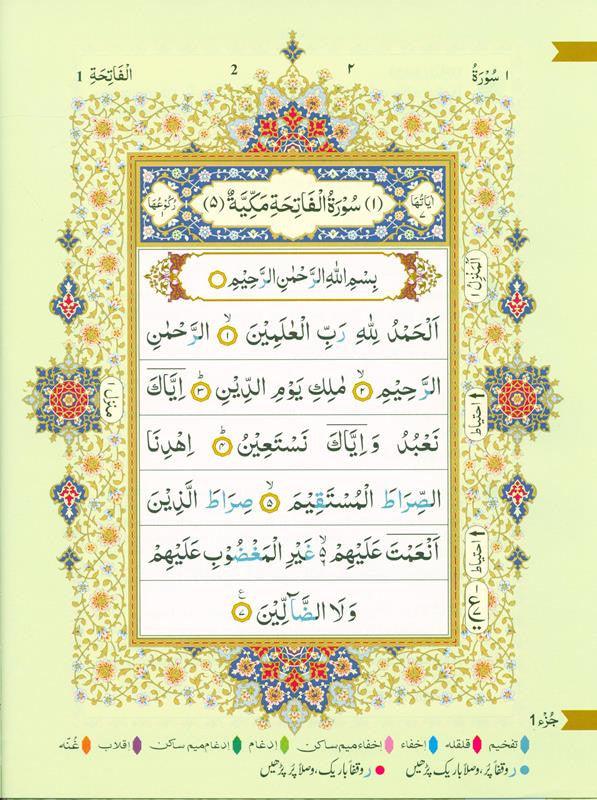 سُوْرَةُ ١ ٢ 2 اَلْفَاتِحَةِ 1
اٰيَاتُهَا ٧ (١) سُوْرَةُ الْفَاتِحَةِ مَكِّيَّةٌ (٥) رُكُوْعُهَا ١
بِسْمِ اللّٰهِ الرَّحْمٰنِ الرَّحِيْمِ
اَلْحَمْدُ لِلّٰهِ رَبِّ الْعٰلَمِيْنَ ۙ‏ ١ الرَّحْمٰنِ
الرَّحِيْمِ ۙ‏ ٢ مٰلِكِ يَوْمِ الدِّيْنِ ؕ‏ ٣ اِيَّاكَ
نَعْبُدُ وَ اِيَّاكَ نَسْتَعِيْنُ ؕ‏ ٤ اِهْدِنَا
الصِّرَاطَ الْمُسْتَقِيْمَ ۙ‏ ٥ صِرَاطَ الَّذِيْنَ
اَنْعَمْتَ عَلَيْهِمْ ۙ٦ غَيْرِ الْمَغْضُوْبِ عَلَيْهِمْ
وَلَا الضَّآلِّيْنَ ٧ ع
اَلْمَنْزِلُ ١
منزل ١
احتیاط
احتیاط
جُزْء 1
تفخیم قلقلہ اخفاء اخفاء میم ساکن إدغام إدغام میم ساکن إقلاب غُنّہ
ر وقفاً پُر، وصلاً باریک پڑھیں ر وقفاً باریک، وصلاً پُر پڑھیں